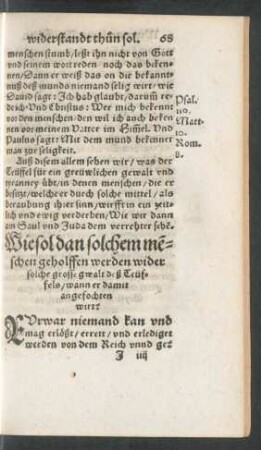 widerstandt thůn sol. 68
menschen stumb/leßt ihn nicht von Gott
vnd seinem wort reden noch das beken-
nen/Dann er weiß das on die bekannt-
nuß deß munds niemand selig wirt/wie
Dauid sagt: Ich hab glaubt/darumb re-
de ich. Vnd Christus: Wer mich bekennt
vor den menschen/den wil ich auch beken
nen vor meinem Vatter im Himel. Vnd
Paulus sagt: Mit dem mund bekennet
man zur seligkeit.
Psal.
110.
Matt-
10.
Rom.
8.
Auß disem allem sehen wir/was der
Teüffel für ein greüwlichen gewalt vnd
tyranney übt/in denen menschen/die er
besitzt/welche er durch solche mittel/als
beraubung jhrer sinn/wirfft in ein zeyt-
lich vnd ewig verderben/Wie wir dann
an Saul vnd Juda dem verrehter sehē.
Wie sol dan solchem mē-
schen geholffen werden wider
solche grosse gwalt deß Teüf-
fels/wann er damit
angefochten
wirt?
FVrwar niemand kan vnd
mag erlößt/errett/vnd erlediget
werden von dem Reich vnnd ge-
J iiij